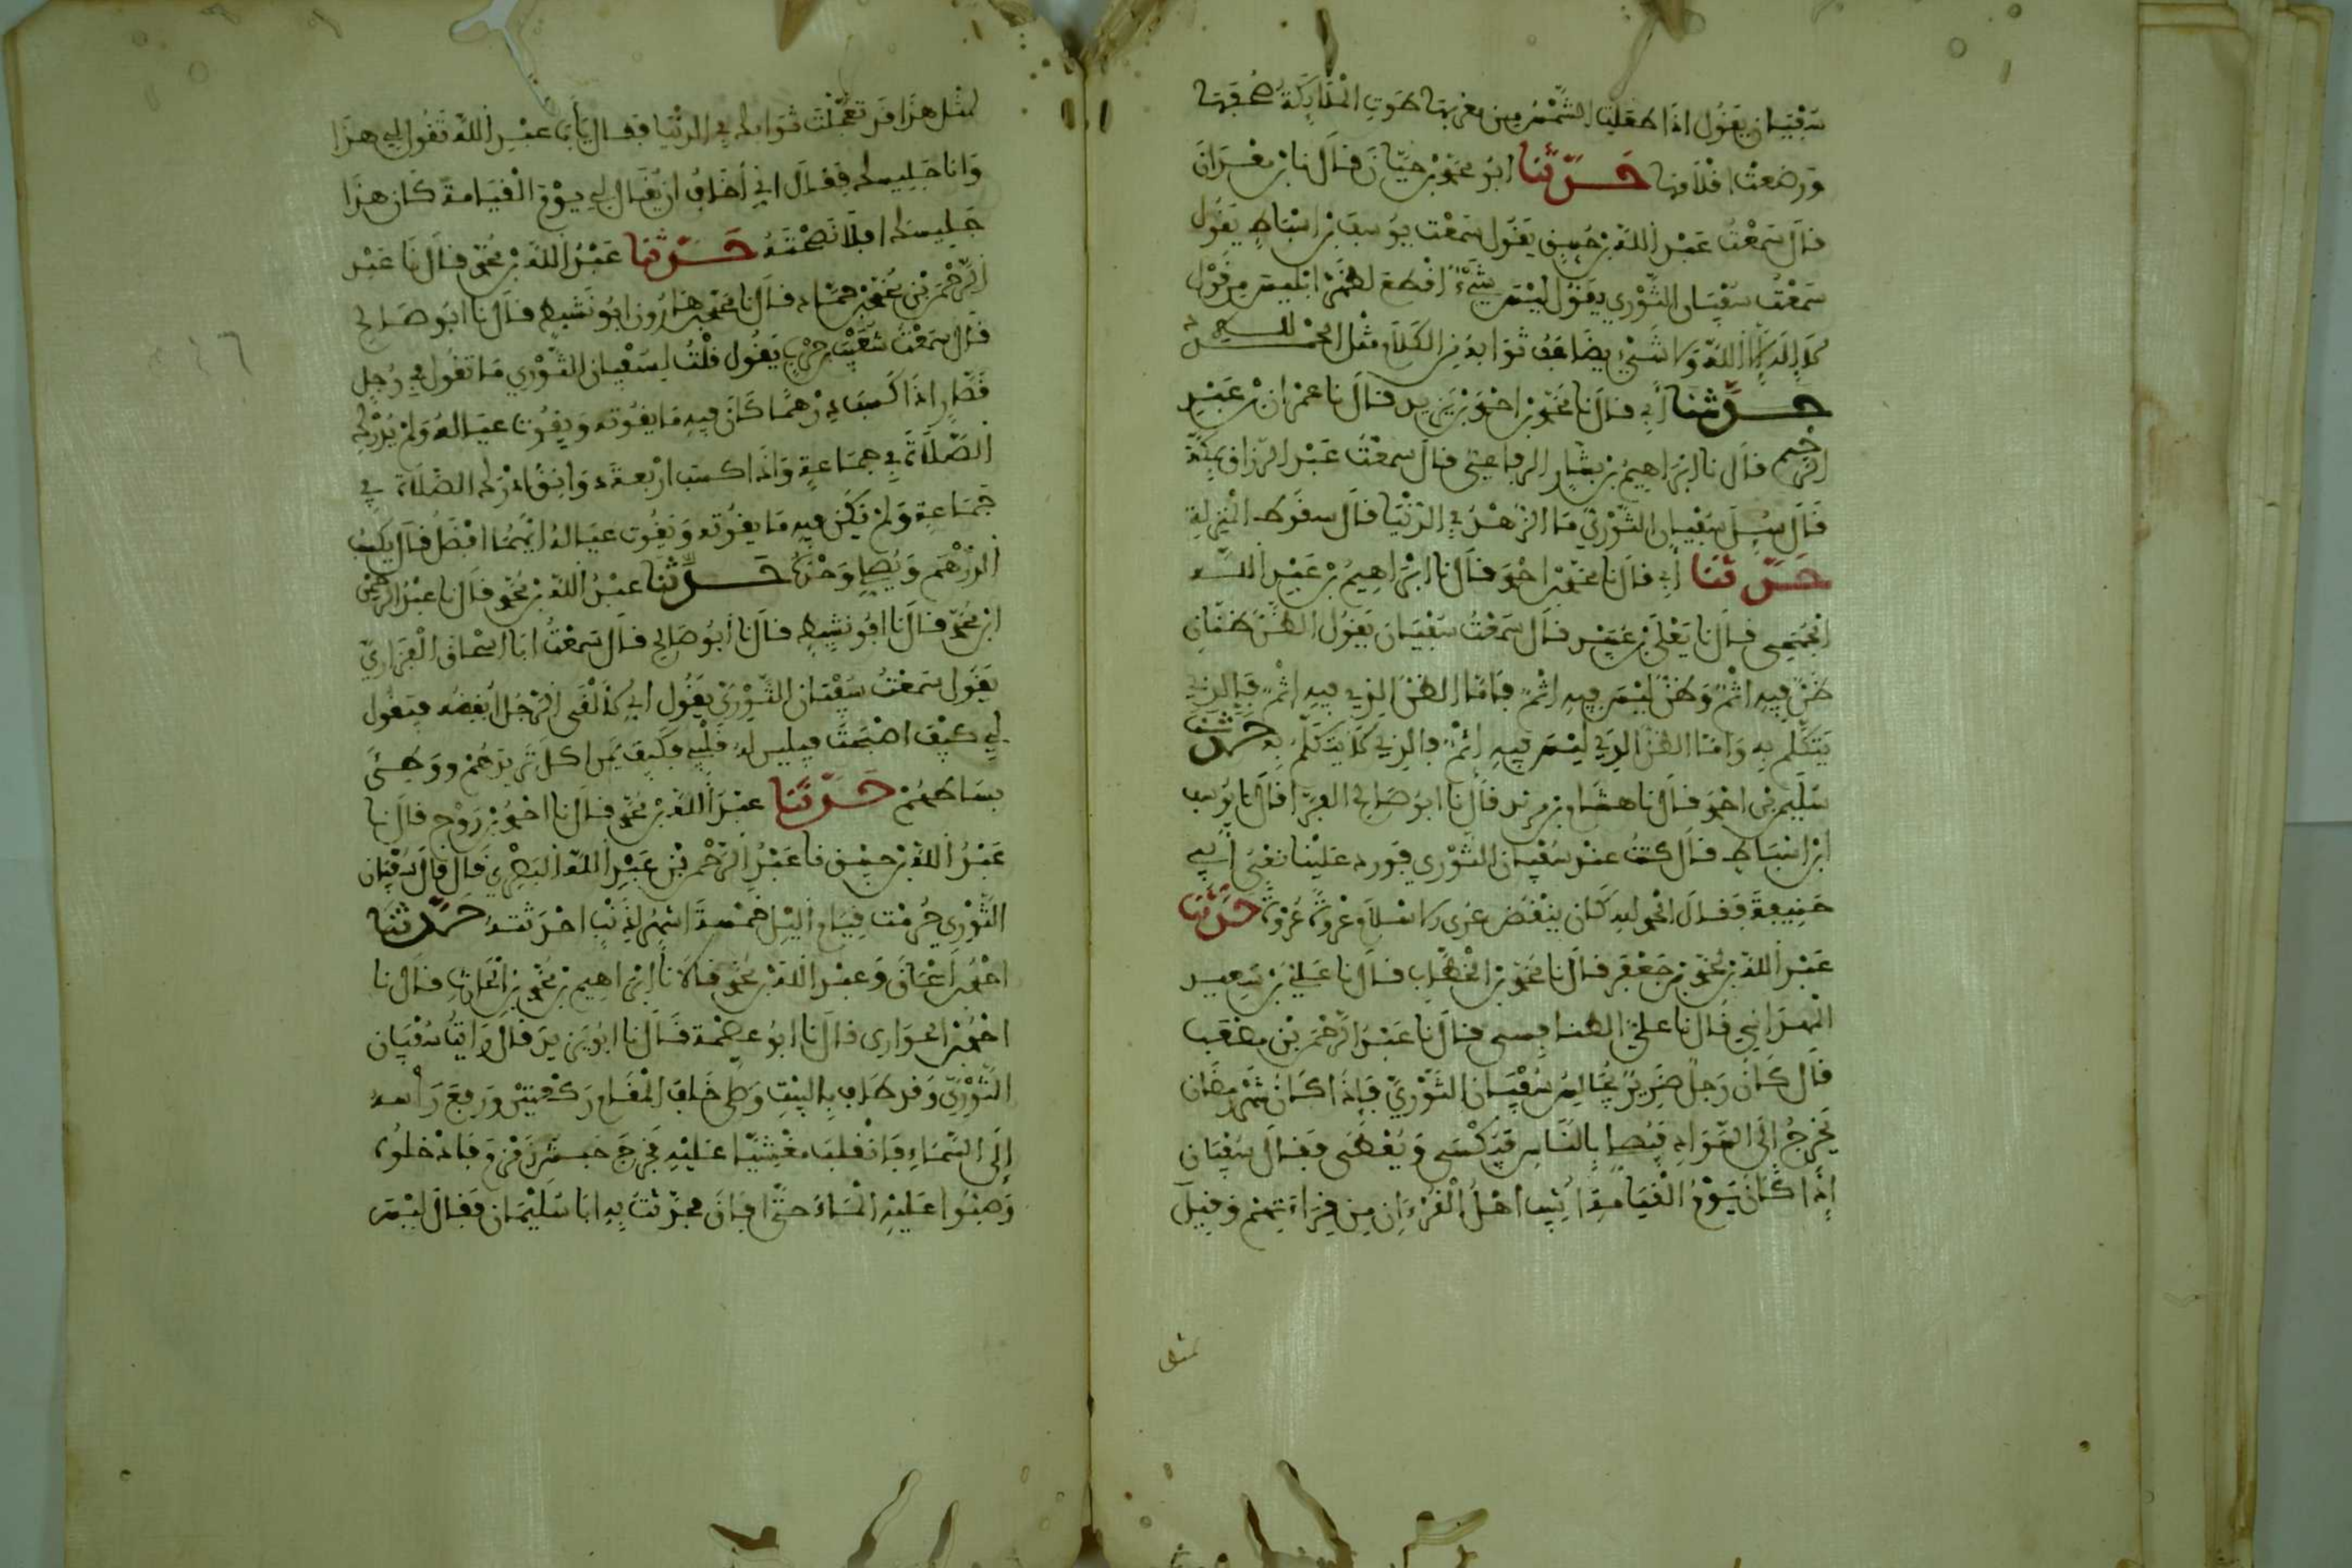 سفيان يقول اذا طلعت الشمس من مغربها طوت الملائكة صحفها
ووضعت اقلامها حدثنا ابو محمد بن حيان قال نا بن معدان
قال سمعت عبد الله بن خبيق يقول سمعت يوسف بن اسباط يقول
سمعت سفيان الثوري يقول ليس شيء اقطع لظهر ابليس من قول
لا إله إلا الله ولا شيء يضاعف ثوابه من الكلام مثل الحمد لله
حدثنا أبي قال نا محمد بن احمد بن يزيد قال نا عمران بن عبد
الرحيم قال نا ابراهيم بن بشار الرمادي قال سمعت عبد الرزاق بمكة
قال سئل سفيان الثوري ما الزهد في الدنيا قال سقوط المنزلة
حدثنا أبي قال نا محمد بن احمد قال نا ابراهيم بن عبد الله
الجمحي قال نا يعلى بن عبيد قال سمعت سفيان يقول الظن ظنان
ظن فيه اثم وظن ليس فيه اثم فاما الظن الذي فيه اثم فالذي
يتكلم به واما الظن الذي ليس فيه اثم فالذي لا يتكلم به حدثنا
سليمن بن احمد قال نا هشام بن مرثد قال نا ابو صالح الفرا قال نا يوسف
ابن اسباط قال كنت عند سفيان الثوري فورد علينا نعي أبي
حنيفة فقال الحمد لله كان ينقض عرى الاسلام عروة عروة حدثنا
عبد الله بن محمد بن جعفر قال نا محمد بن الخطاب قال نا علي بن سعيد
قال نا علي الطنافسي قال نا عبد الرحمن بن مصعب
قال كان رجل ضرير يجالس سفيان الثوري فإذا كان شهر رمضان
يخرج إلى السواد فيصلي بالناس فيكسى ويعطى فقال سفيان
إذا كان يوم القيامة أثيب أهل القرءان من قراءتهم وقيل
لمثل
لمثل هذا قد تعجلت ثوابك في الدنيا فقال يأبا عبد الله تقول لي هذا
وانا جليسك فقال اني أخاف ان يقال لي يوم القيامة كان هذا
جليسك افلا نصحته حدثنا عبد الله بن محمد قال نا عبد
الرحمن بن محمد بن حماد قال نا محمد بن هارون ابو نشيط قال نا ابو صالح
قال سمعت شعيب بن حرب يقول قلت لسفيان الثوري ما تقول في رجل
قصار اذا كسب درهما كان فيه ما يقوته ويقوت عياله ولم يدرك
الصلاة في جماعة واذا كسب اربعة دوانق ادرك الصلاة في
جماعة ولم يكن فيه ما يقوته ويقوت عياله ايهما افضل قال يكسب
الدرهم ويصلي وحده حدثنا عبد الله بن محمد قال نا عبد الرحمن
ابن محمد قال نا ابو نشيط قال نا أبو صالح قال سمعت ابا اسحاق الفزاري
يقول سمعت سفيان الثوري يقول اني لألقى الرجل أبغضه فيقول
لي كيف اصبحت فيلين له قلبي فكيف بمن اكل ثريدهم ووطئ
بساطهم حدثنا عبد الله بن محمد قال نا احمد بن روح قال نا
عبد الله بن خبيق نا عبد الرحمن بن عبد الله البصري قال قال سفيان
الثوري حرمت قيام الليل خمسة اشهر بذنب احدثته حدثنا
احمد بن اسحاق وعبد الله بن محمد قالا نا ابراهيم بن محمد بن الحارث قال نا
احمد بن الحواري قال نا ابو عصمة قال نا ابو يزيد قال رايت سفيان
الثوري وقد طاف بالبيت وصلى خلف المقام ركعتين ورفع رأسه
إلى السماء فانقلب مغشيا عليه فخرج حبش زمزم فادخلوه
وصبوا عليه الماء حتى افاق فحدثت به ابا سليمان فقال ليس